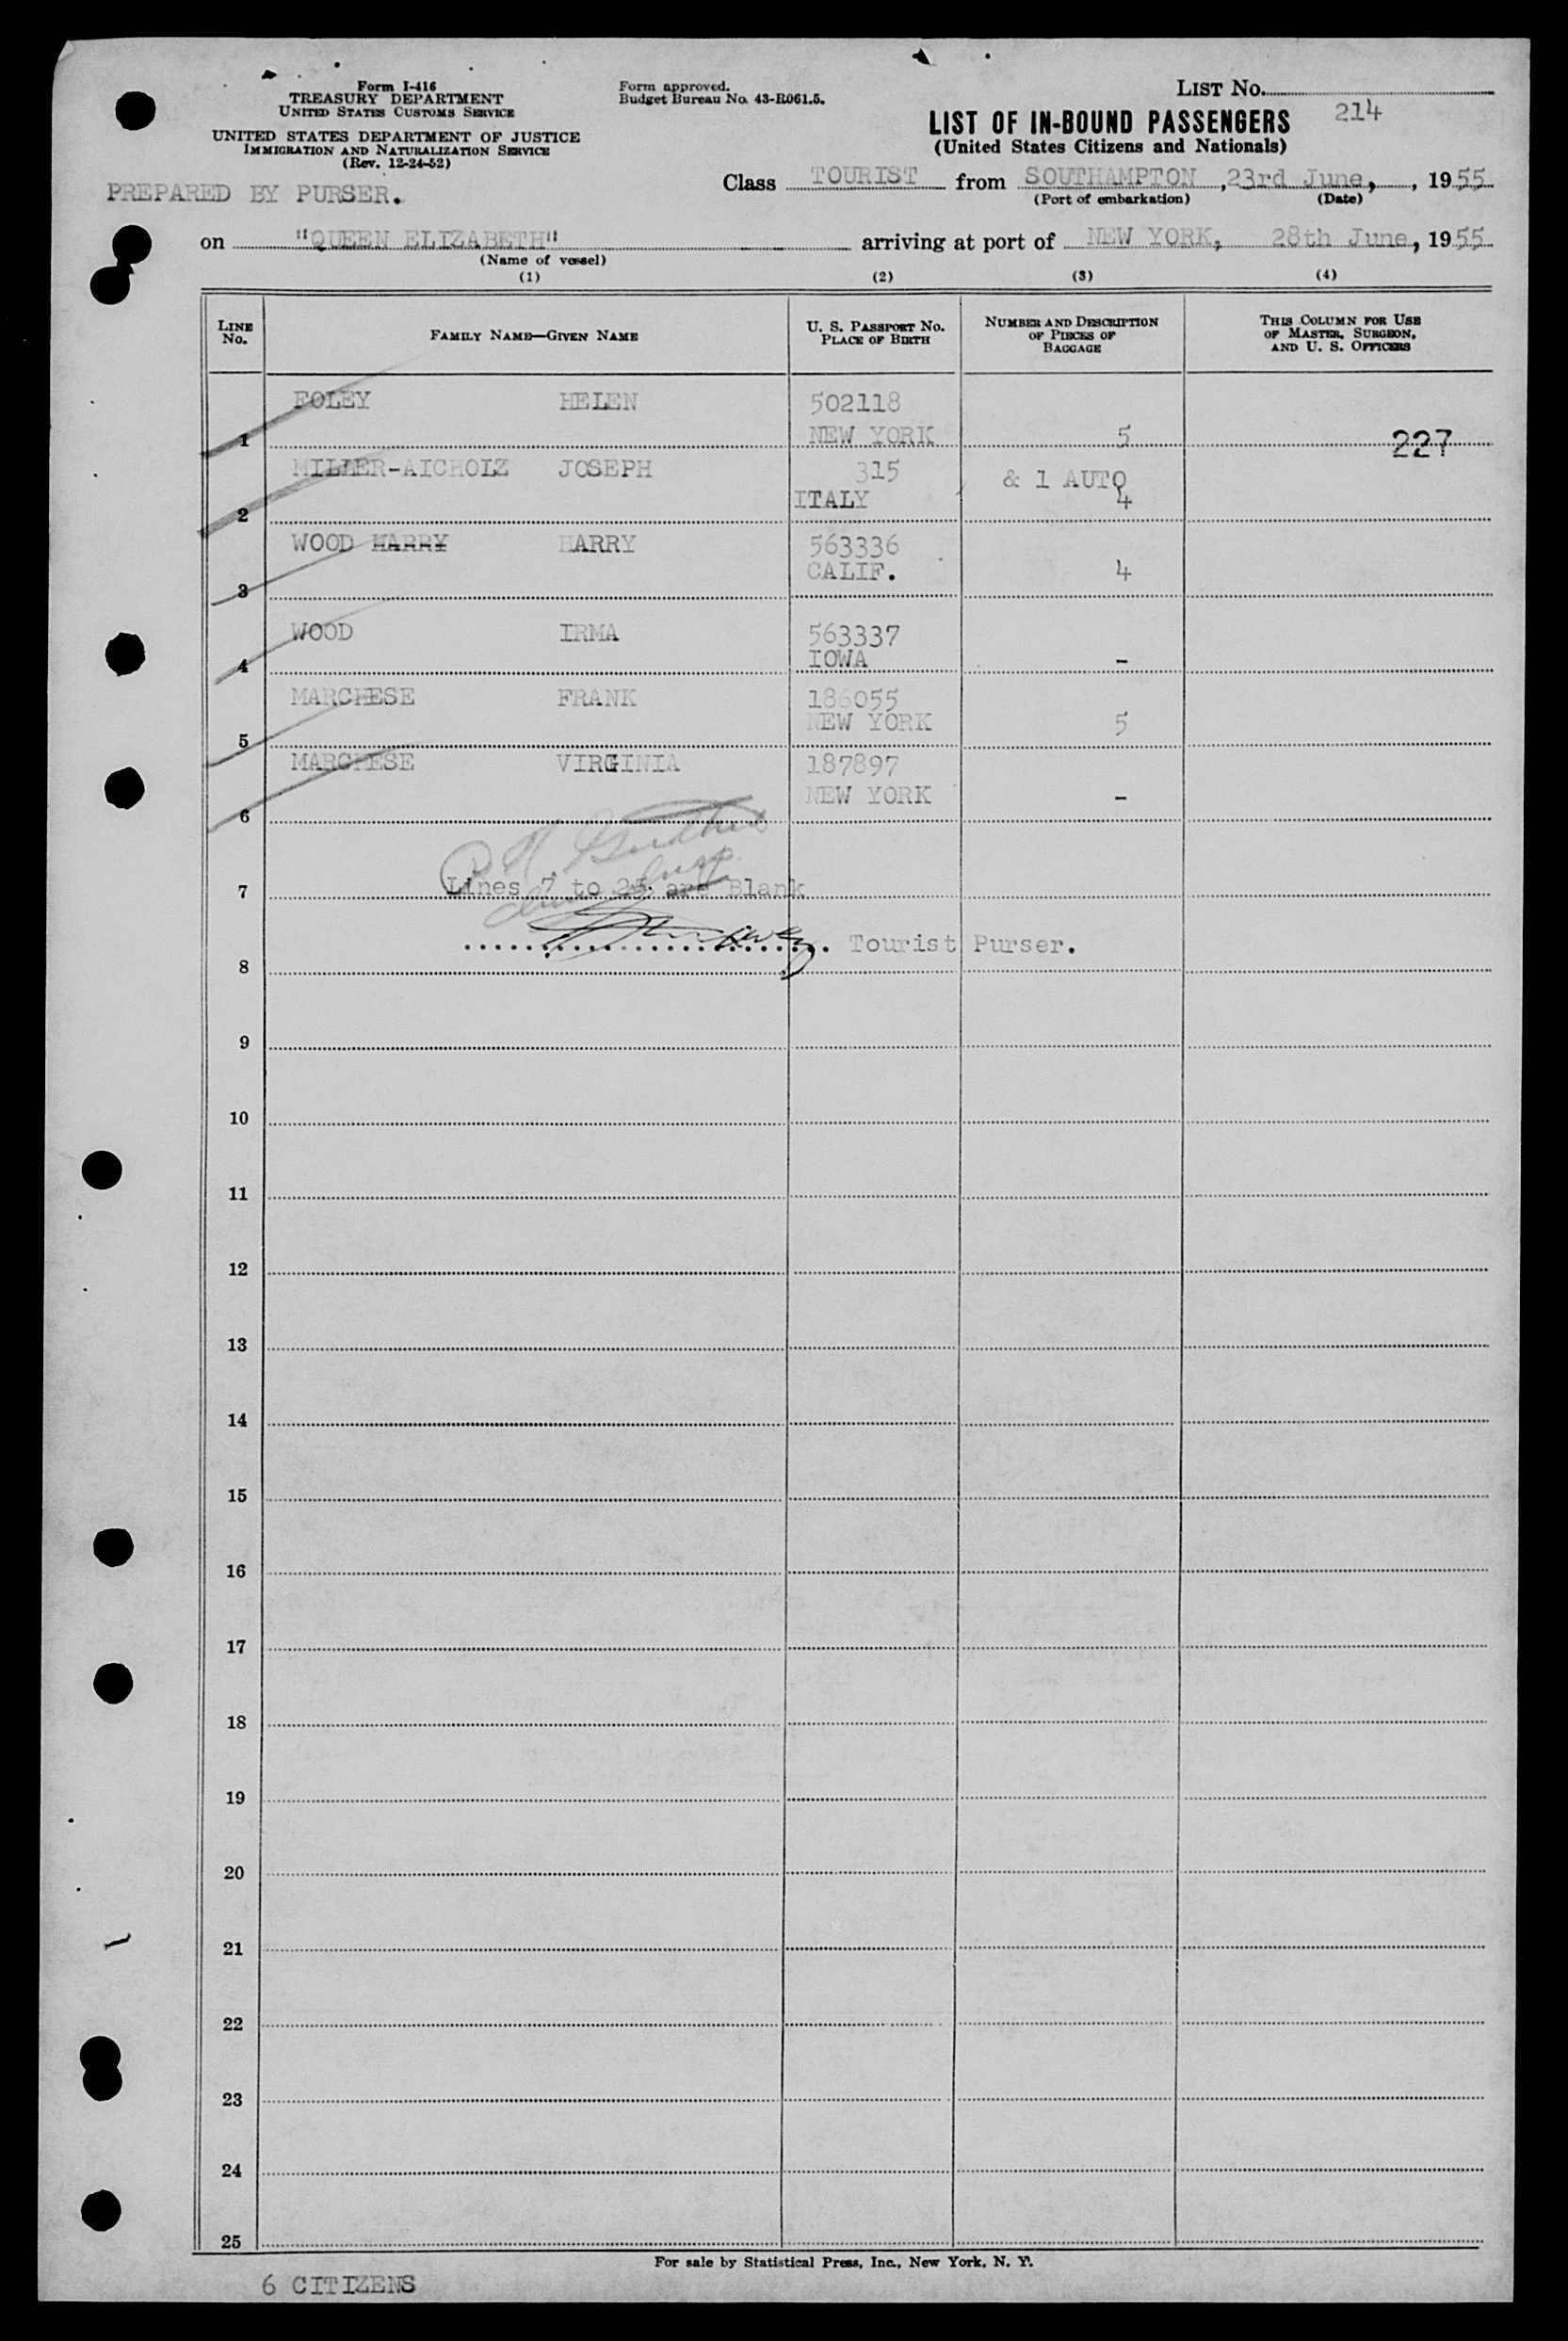 Form I-416
TREASURY DEPARTMENT
UNITED STATES CUSTOMS SERVICE
UNITED STATES DEPARTMENT OF JUSTICE
IMMIGRATION AND NATURALIZATION SERVICE
(Rev. 12-24-52)
Form approved.
Budget Bureau No. 43-R061.5.
LIST No.
214
LIST OF IN-BOUND PASSENGERS
(United States Citizens and Nationals)
PREPARED BY PURSER.
Class TOURIST from SOUTHAMPTON, 23rd June, , 1955
(Port of embarkation) (Date)
on "QUEEN ELIZABETH" arriving at port of NEW YORK, 28th June, 1955
(Name of vessel)
(1) (2) (3) (4)
LINE No. FAMILY NAME—GIVEN NAME U. S. PASSPORT No. PLACE OF BIRTH NUMBER AND DESCRIPTION OF PIECES OF BAGGAGE THIS COLUMN FOR USE OF MASTER, SURGEON, AND U. S. OFFICERS
FOLEY HELEN 502118
1 NEW YORK 5 227
MILLER-AICHOLZ JOSEPH 315 & 1 AUTO
2 ITALY 4
WOOD HARRY HARRY 563336
3 CALIF. 4
WOOD IRMA 563337
4 IOWA -
MARCHESE FRANK 186055
5 NEW YORK 5
MARCHESE VIRGINIA 187897
6 NEW YORK -
7 Lines 7 to 25 are Blank
Tourist Purser.
8
9
10
11
12
13
14
15
16
17
18
19
20
21
22
23
24
25
For sale by Statistical Press, Inc., New York, N. Y.
6 CITIZENS